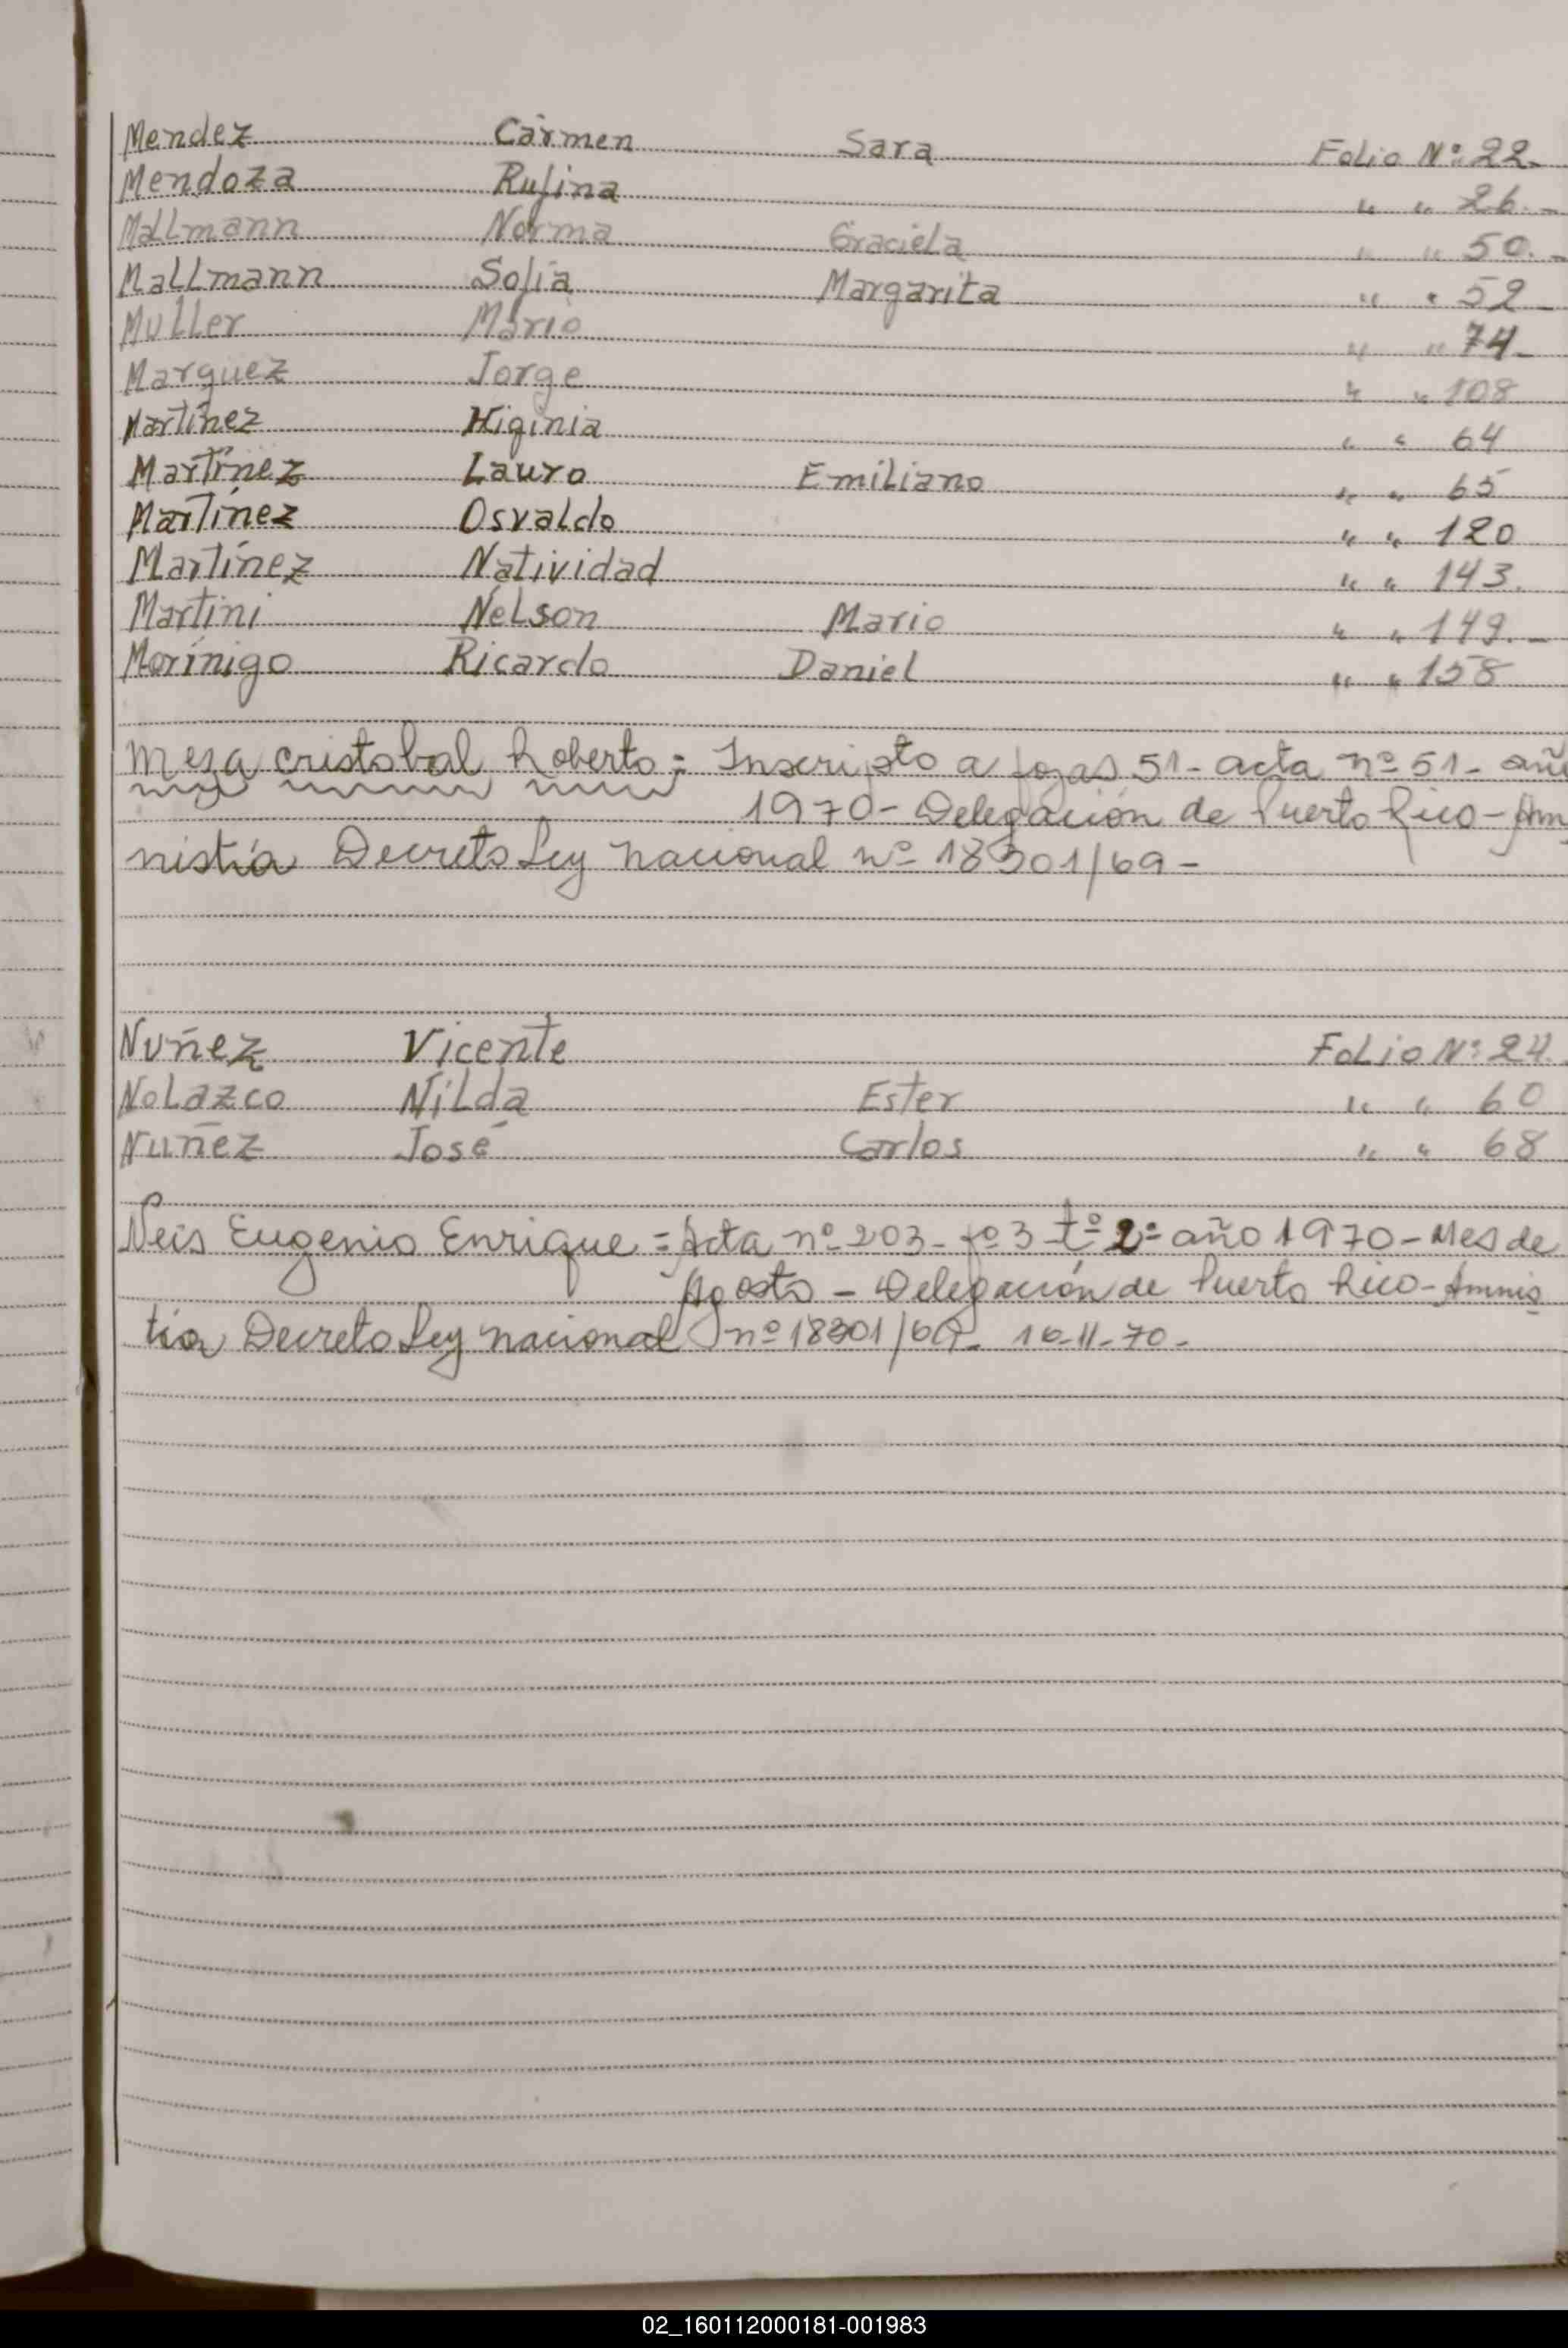 Mendez Cármen Sara Folio Nº: 22.
Mendoza Rufina " " 26.-
Mallmann Norma Graciela " " 50.-
Mallmann Sofia Margarita " " 52-
Muller Mário " " 74-
Marquez Jorge " " 108
Martínez Higinia " " 64
Martínez Lauro Emiliano " " 65
Martínez Osvaldo " " 120
Martínez Natividad " " 143.
Martini Nelson Mario " " 149.-
Morínigo Ricardo Daniel " " 158
Meza Cristobal Roberto = Inscripto a fojas 51- acta nº 51- añ
1970- Delegación de Puerto Rico- Am
nistía Decreto Ley nacional nº 18301/69-
Nuñez Vicente Folio Nº: 24.
Nolazco Nilda Ester " " 60
Nuñez José Carlos " " 68
Neis Eugenio Enrique = Acta nº 203- fº 3 tº 2º año 1970- Mes de
Agosto - Delegación de Puerto Rico- Amnis
tía Decreto Ley nacional nº 18301/69- 16-11-70-
02_160112000181-001983